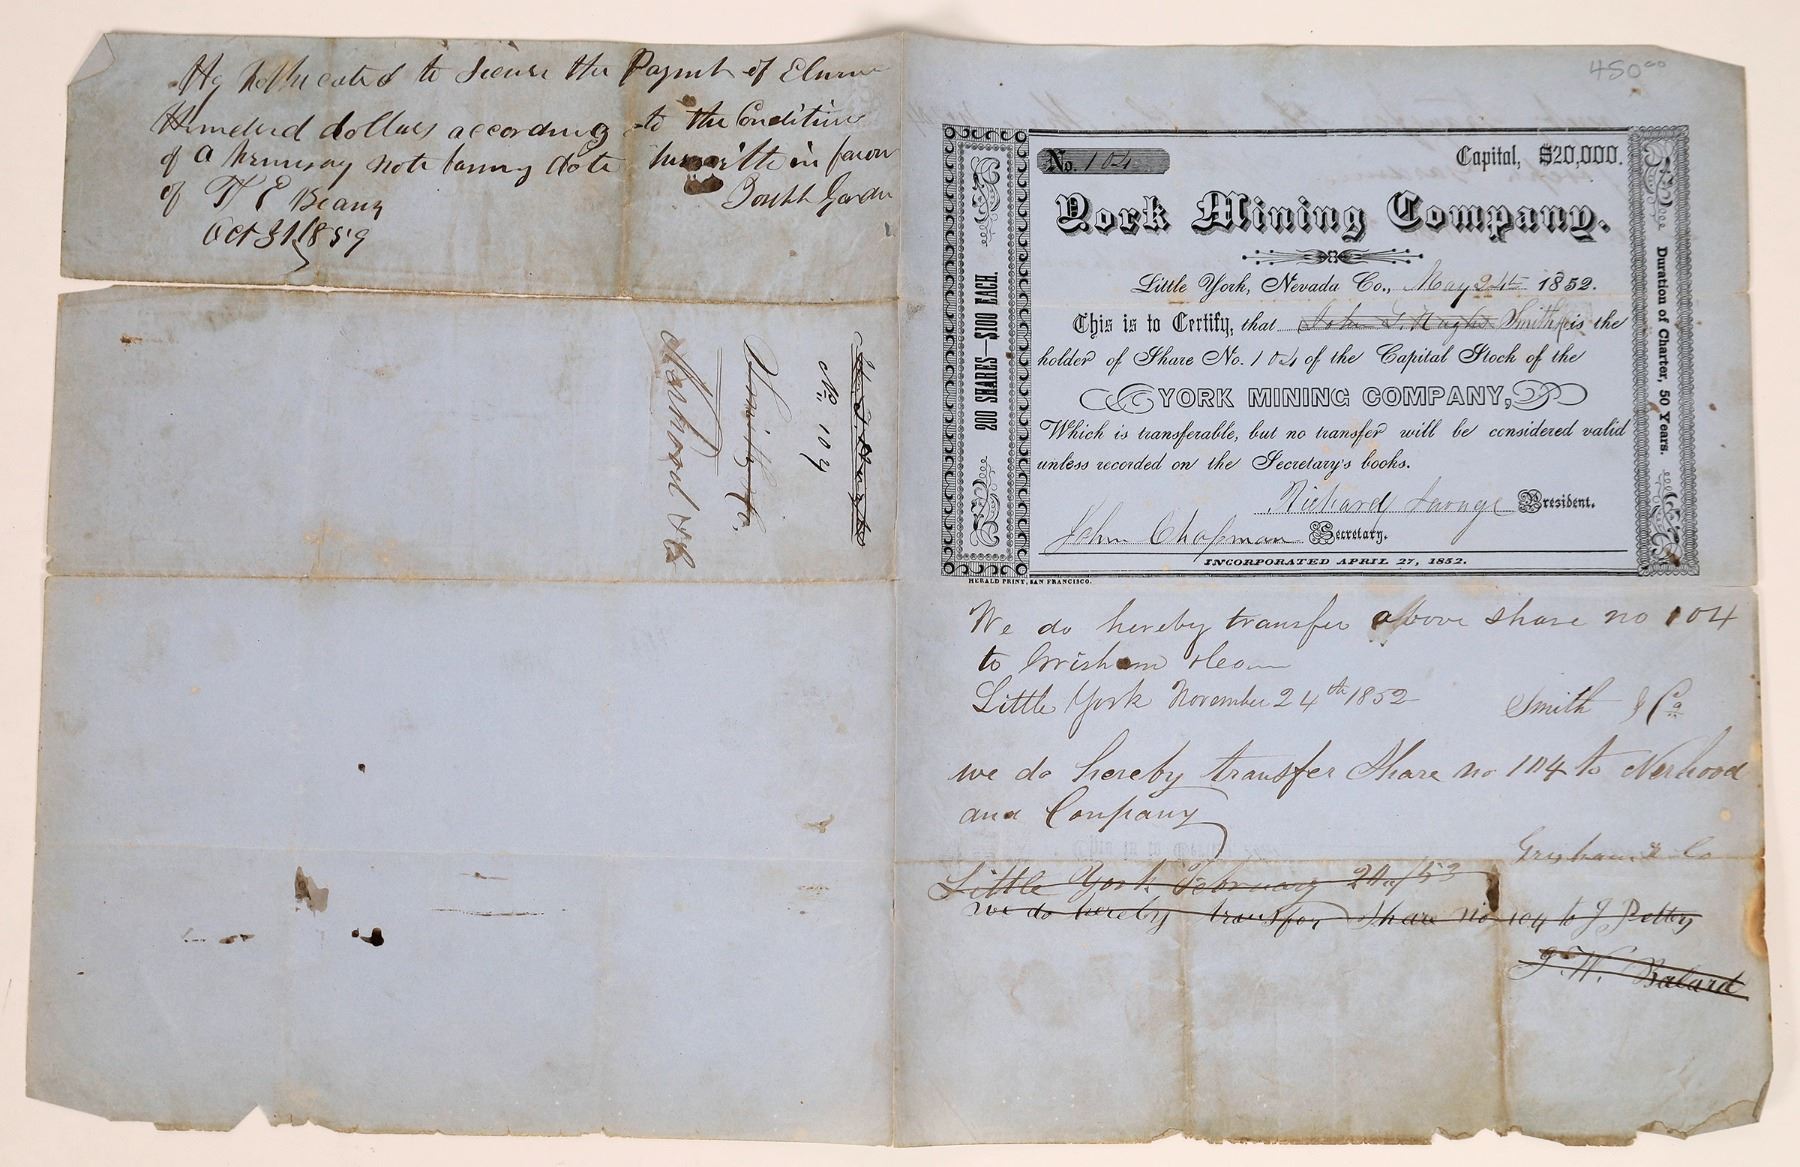 Hypothecated to secure the Payment of Eleven
Hundred dollars according to the Condition
of a Promisory note baring date herewith in favor
of W E Beans
Oct 31 1859
Joseph Gardn
J. T. Hughs
No. 104
Smith & Co.
Narhood & Co
450.00
No. 104
Capital, $20,000.
York Mining Company.
Little York, Nevada Co., May 24th 1852.
This is to Certify, that John T. Hughs Smith is the
holder of Share No. 104 of the Capital Stock of the
YORK MINING COMPANY,
Which is transferable, but no transfer will be considered valid
unless recorded on the Secretary's books.
Richard Savage President.
John Chapman Secretary.
INCORPORATED APRIL 27, 1852.
200 SHARES—$100 EACH.
Duration of Charter, 50 Years.
HERALD PRINT, SAN FRANCISCO.
We do hereby transfer above share no 104
to Grisham &
Little York November 24th 1852
Smith & Co
we do hereby transfer Share no 104 to Narhood
and Conpany
Grisham & Co
Little York February 24/53
we do hereby transfer Share no 104 to J Petty
J. W. Balard